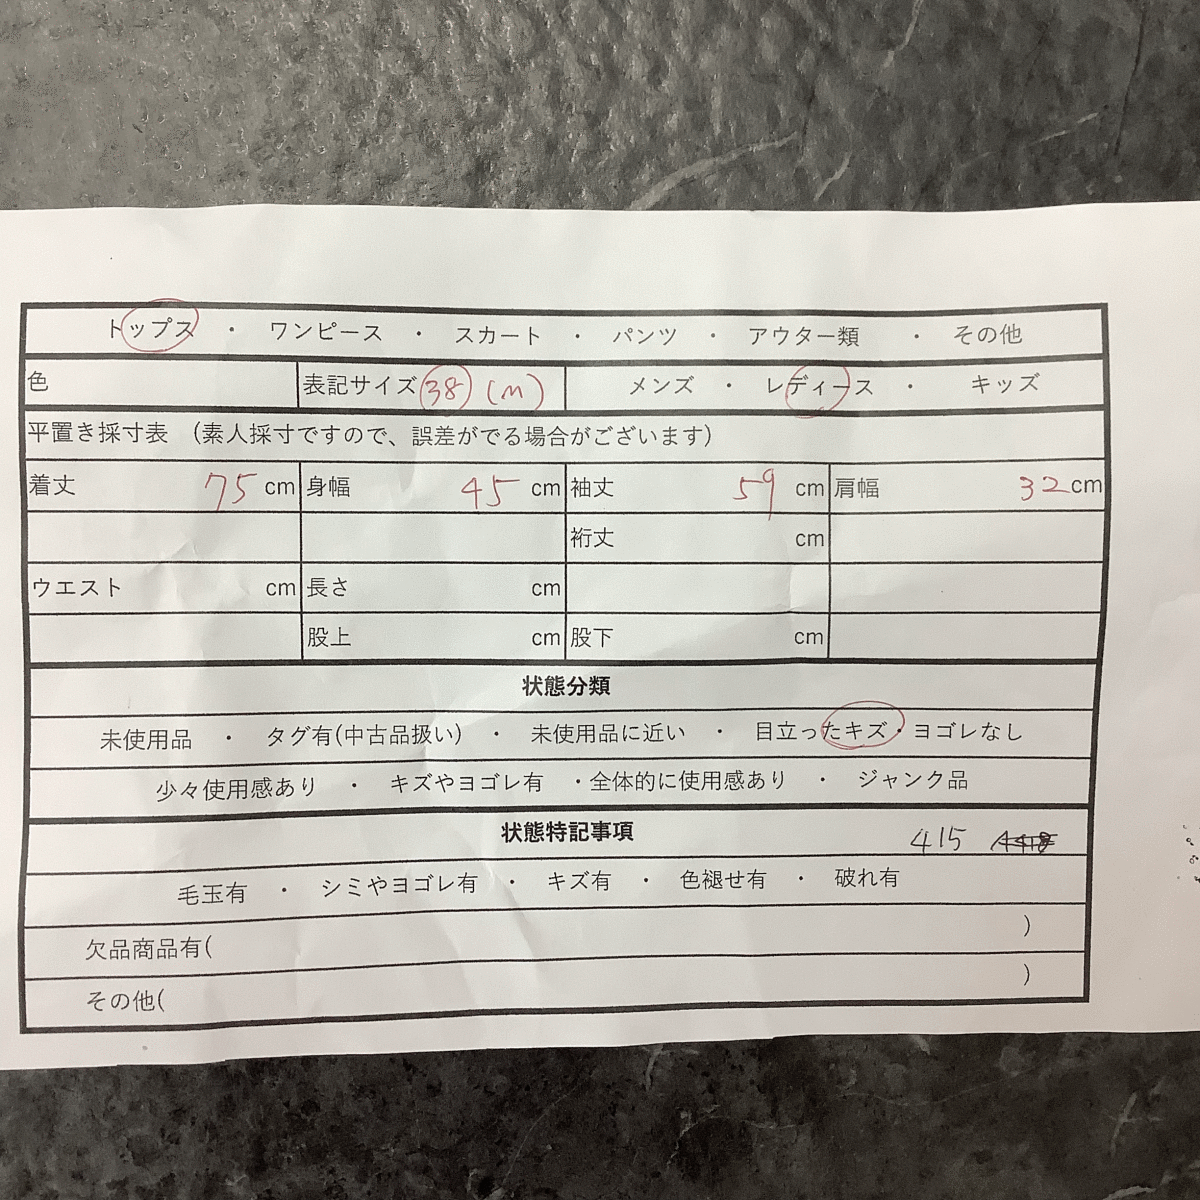 トップス ・ ワンピース ・ スカート ・ パンツ ・ アウター類 ・ その他
色 表記サイズ 38 (M) メンズ ・ レディース ・ キッズ
平置き採寸表 (素人採寸ですので、誤差がでる場合がございます)
着丈 75 cm 身幅 45 cm 袖丈 59 cm 肩幅 32 cm
裄丈 cm
ウエスト cm 長さ cm
股上 cm 股下 cm
状態分類
未使用品 ・ タグ有(中古品扱い) ・ 未使用品に近い ・ 目立ったキズ・ヨゴレなし
少々使用感あり ・ キズやヨゴレ有 ・全体的に使用感あり ・ ジャンク品
状態特記事項 415
毛玉有 ・ シミやヨゴレ有 ・ キズ有 ・ 色褪せ有 ・ 破れ有
欠品商品有( )
その他( )